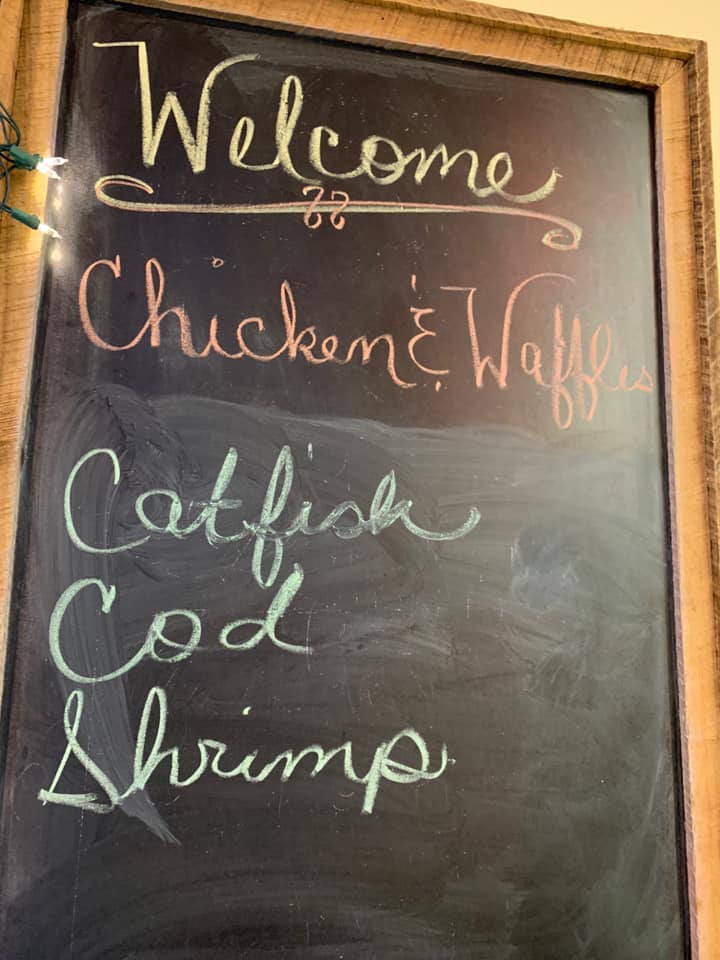 Welcome
Chicken & Waffles
Catfish
Cod
Shrimp